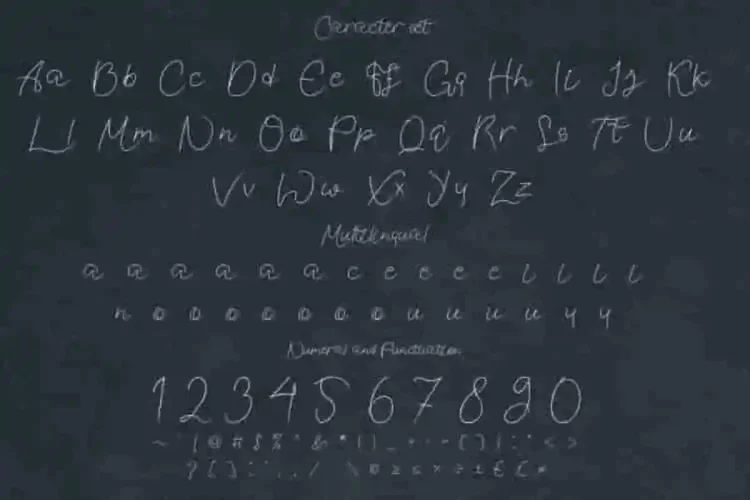 Caracter set
Aa Bb Cc Dd Ee Ff Gg Hh Ii Jj Kk
Ll Mm Nn Oo Pp Qq Rr Ss Tt Uu
Vv Ww Xx Yy Zz
Multilingual
a a a a a a c e e e e i i i i
n o o o o o o u u u u y y
Numeral and Punctuation
1234567890